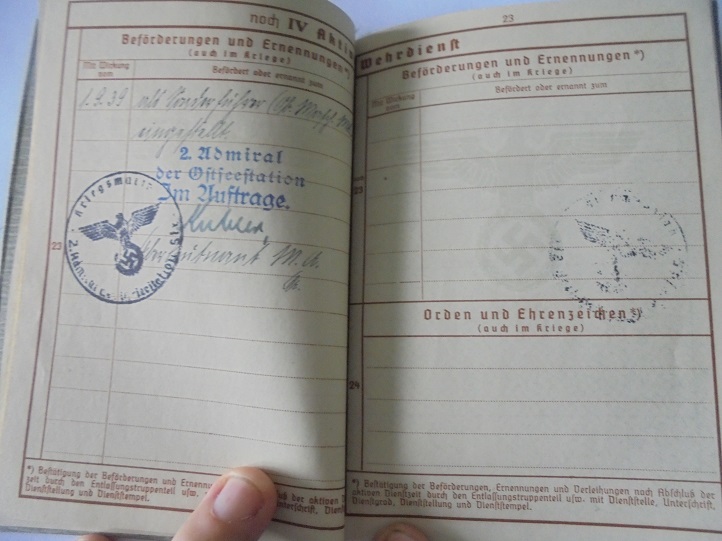 noch IV Akti
Beförderungen und Ernennungen*)
(auch im Kriege)
Mit Wirkung
vom
Befördert oder ernannt zum
1.9.39 als Sonderführer
eingestellt.
2. Admiral
der Ostseestation
Im Auftrage.
Oberleutnant M.A.
Kriegsmarine
23
*) Bestätigung der Beförderungen und Ernen
zeit durch den Entlassungstruppenteil usw.
Dienststellung und Dienststempel.
luß der aktinen D
nterschrift, Dien
23
Wehrdienst
Beförderungen und Ernennungen*)
(auch im Kriege)
Mit Wirkung
vom
Befördert oder ernannt zum
23
Orden und Ehrenzeichen*)
(auch im Kriege)
24
*) Bestätigung der Beförderungen, Ernennungen und Verleihungen nach Abschluß der
aktinen Dienstzeit durch den Entlassungstruppenteil usw. mit Dienststelle, Unterschrift,
Dienstgrad, Dienststellung und Dienststempel.